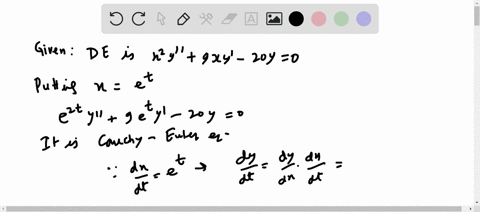 Given: DE is x²y'' + 9xy' - 20y = 0
Putting x = e^t
e^{2t} y'' + 9e^t y' - 20y = 0
It is Cauchy - Euler eq -
∵ dx/dt = e^t → dy/dt = dy/dx · dx/dt =